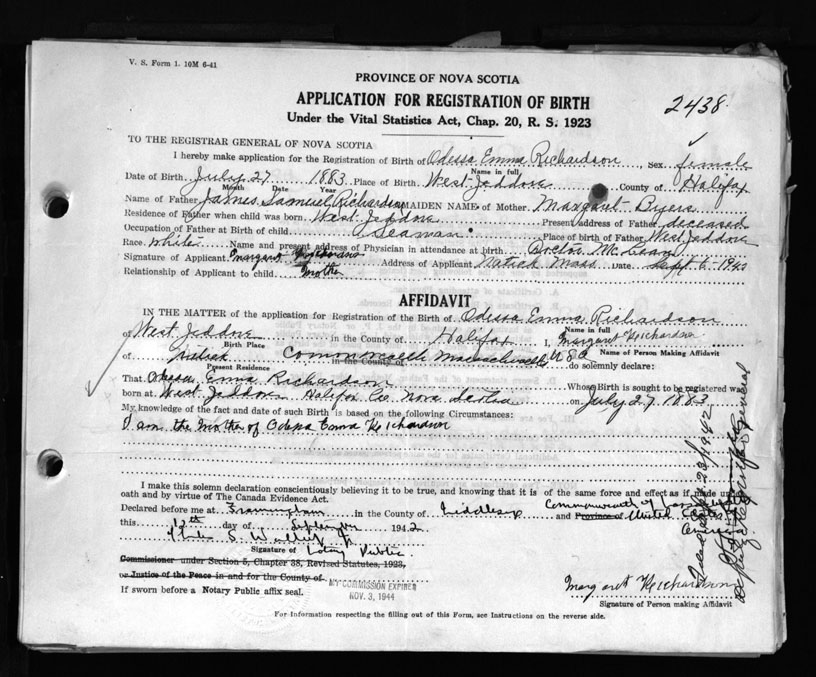 V. S. Form 1. 10M 6-41
PROVINCE OF NOVA SCOTIA
APPLICATION FOR REGISTRATION OF BIRTH
2438
Under the Vital Statistics Act, Chap. 20, R. S. 1923
TO THE REGISTRAR GENERAL OF NOVA SCOTIA
I hereby make application for the Registration of Birth of Odessa Emma Richardson, Sex female
Name in full
Date of Birth July 27 1883 Place of Birth West Jeddore County of Halifax
Month Date Year
Name of Father James Samuel Richardson MAIDEN NAME of Mother Margaret Byers
Residence of Father when child was born West Jeddore Present address of Father deceased
Occupation of Father at Birth of child Seaman Place of birth of Father West Jeddore
Race white Name and present address of Physician in attendance at birth Doctor Mc
Signature of Applicant Margaret Richardson Address of Applicant Natick Mass Date Sept 6 - 1942
Relationship of Applicant to child Mother
AFFIDAVIT
IN THE MATTER of the application for Registration of the Birth of Odessa Emma Richardson
Name in full
of West Jeddore in the County of Halifax I, Margaret Richardson
Birth Place Name of Person Making Affidavit
of Natick Commonwealth Massachusetts U S A do solemnly declare:
in the County of
Present Residence
That Odessa Emma Richardson Whose Birth is sought to be registered was
born at West Jeddore Halifax Co. Nova Scotia on July 27 1883
My knowledge of the fact and date of such Birth is based on the following Circumstances:
I am the Mother of Odessa Emma Richardson
I make this solemn declaration conscientiously believing it to be true, and knowing that it is of the same force and effect as if made under
oath and by virtue of The Canada Evidence Act.
Declared before me at Framingham in the County of Middlesex and Province of Commonwealth of Massachusetts United States America
this 12th day of September 1942
Notary Public
Signature of
Commissioner under Section 5, Chapter 38, Revised Statutes, 1923,
or Justice of the Peace in and for the County of
MY COMMISSION EXPIRES
NOV. 3, 1944
If sworn before a Notary Public affix seal.
Margaret Richardson
Signature of Person making Affidavit
For Information respecting the filling out of this Form, see Instructions on the reverse side.
1942
Deputy Registrar General